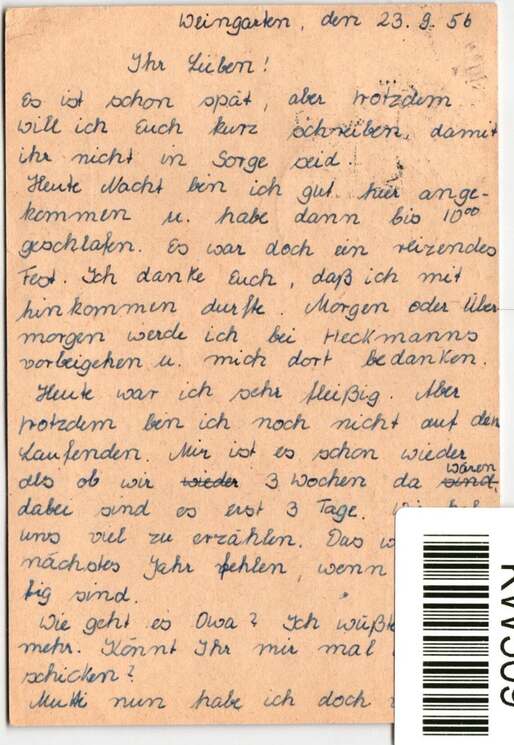 Weingarten, den 23. 9. 56
Ihr Lieben!
Es ist schon spät, aber trotzdem
will ich Euch kurz schreiben, damit
ihr nicht in Sorge seid.
Heute Nacht bin ich gut hier ange-
kommen u. habe dann bis 10⁰⁰
geschlafen. Es war doch ein reizendes
Fest. Ich danke Euch, daß ich mit
hinkommen durfte. Morgen oder Über-
morgen werde ich bei Heckmanns
vorbeigehen u. mich dort bedanken.
Heute war ich sehr fleißig. Aber
trotzdem bin ich noch nicht auf den
Laufenden. Mir ist es schon wieder
als ob wir wieder 3 Wochen da waren sind,
dabei sind es erst 3 Tage.
uns viel zu erzählen. Das
nächstes Jahr fehlen, wenn
tig sind.
Wie geht es Owa? Ich wüßte
mehr. Könnt Ihr mir mal
schicken?
Mutti nun habe ich doch
RVV509